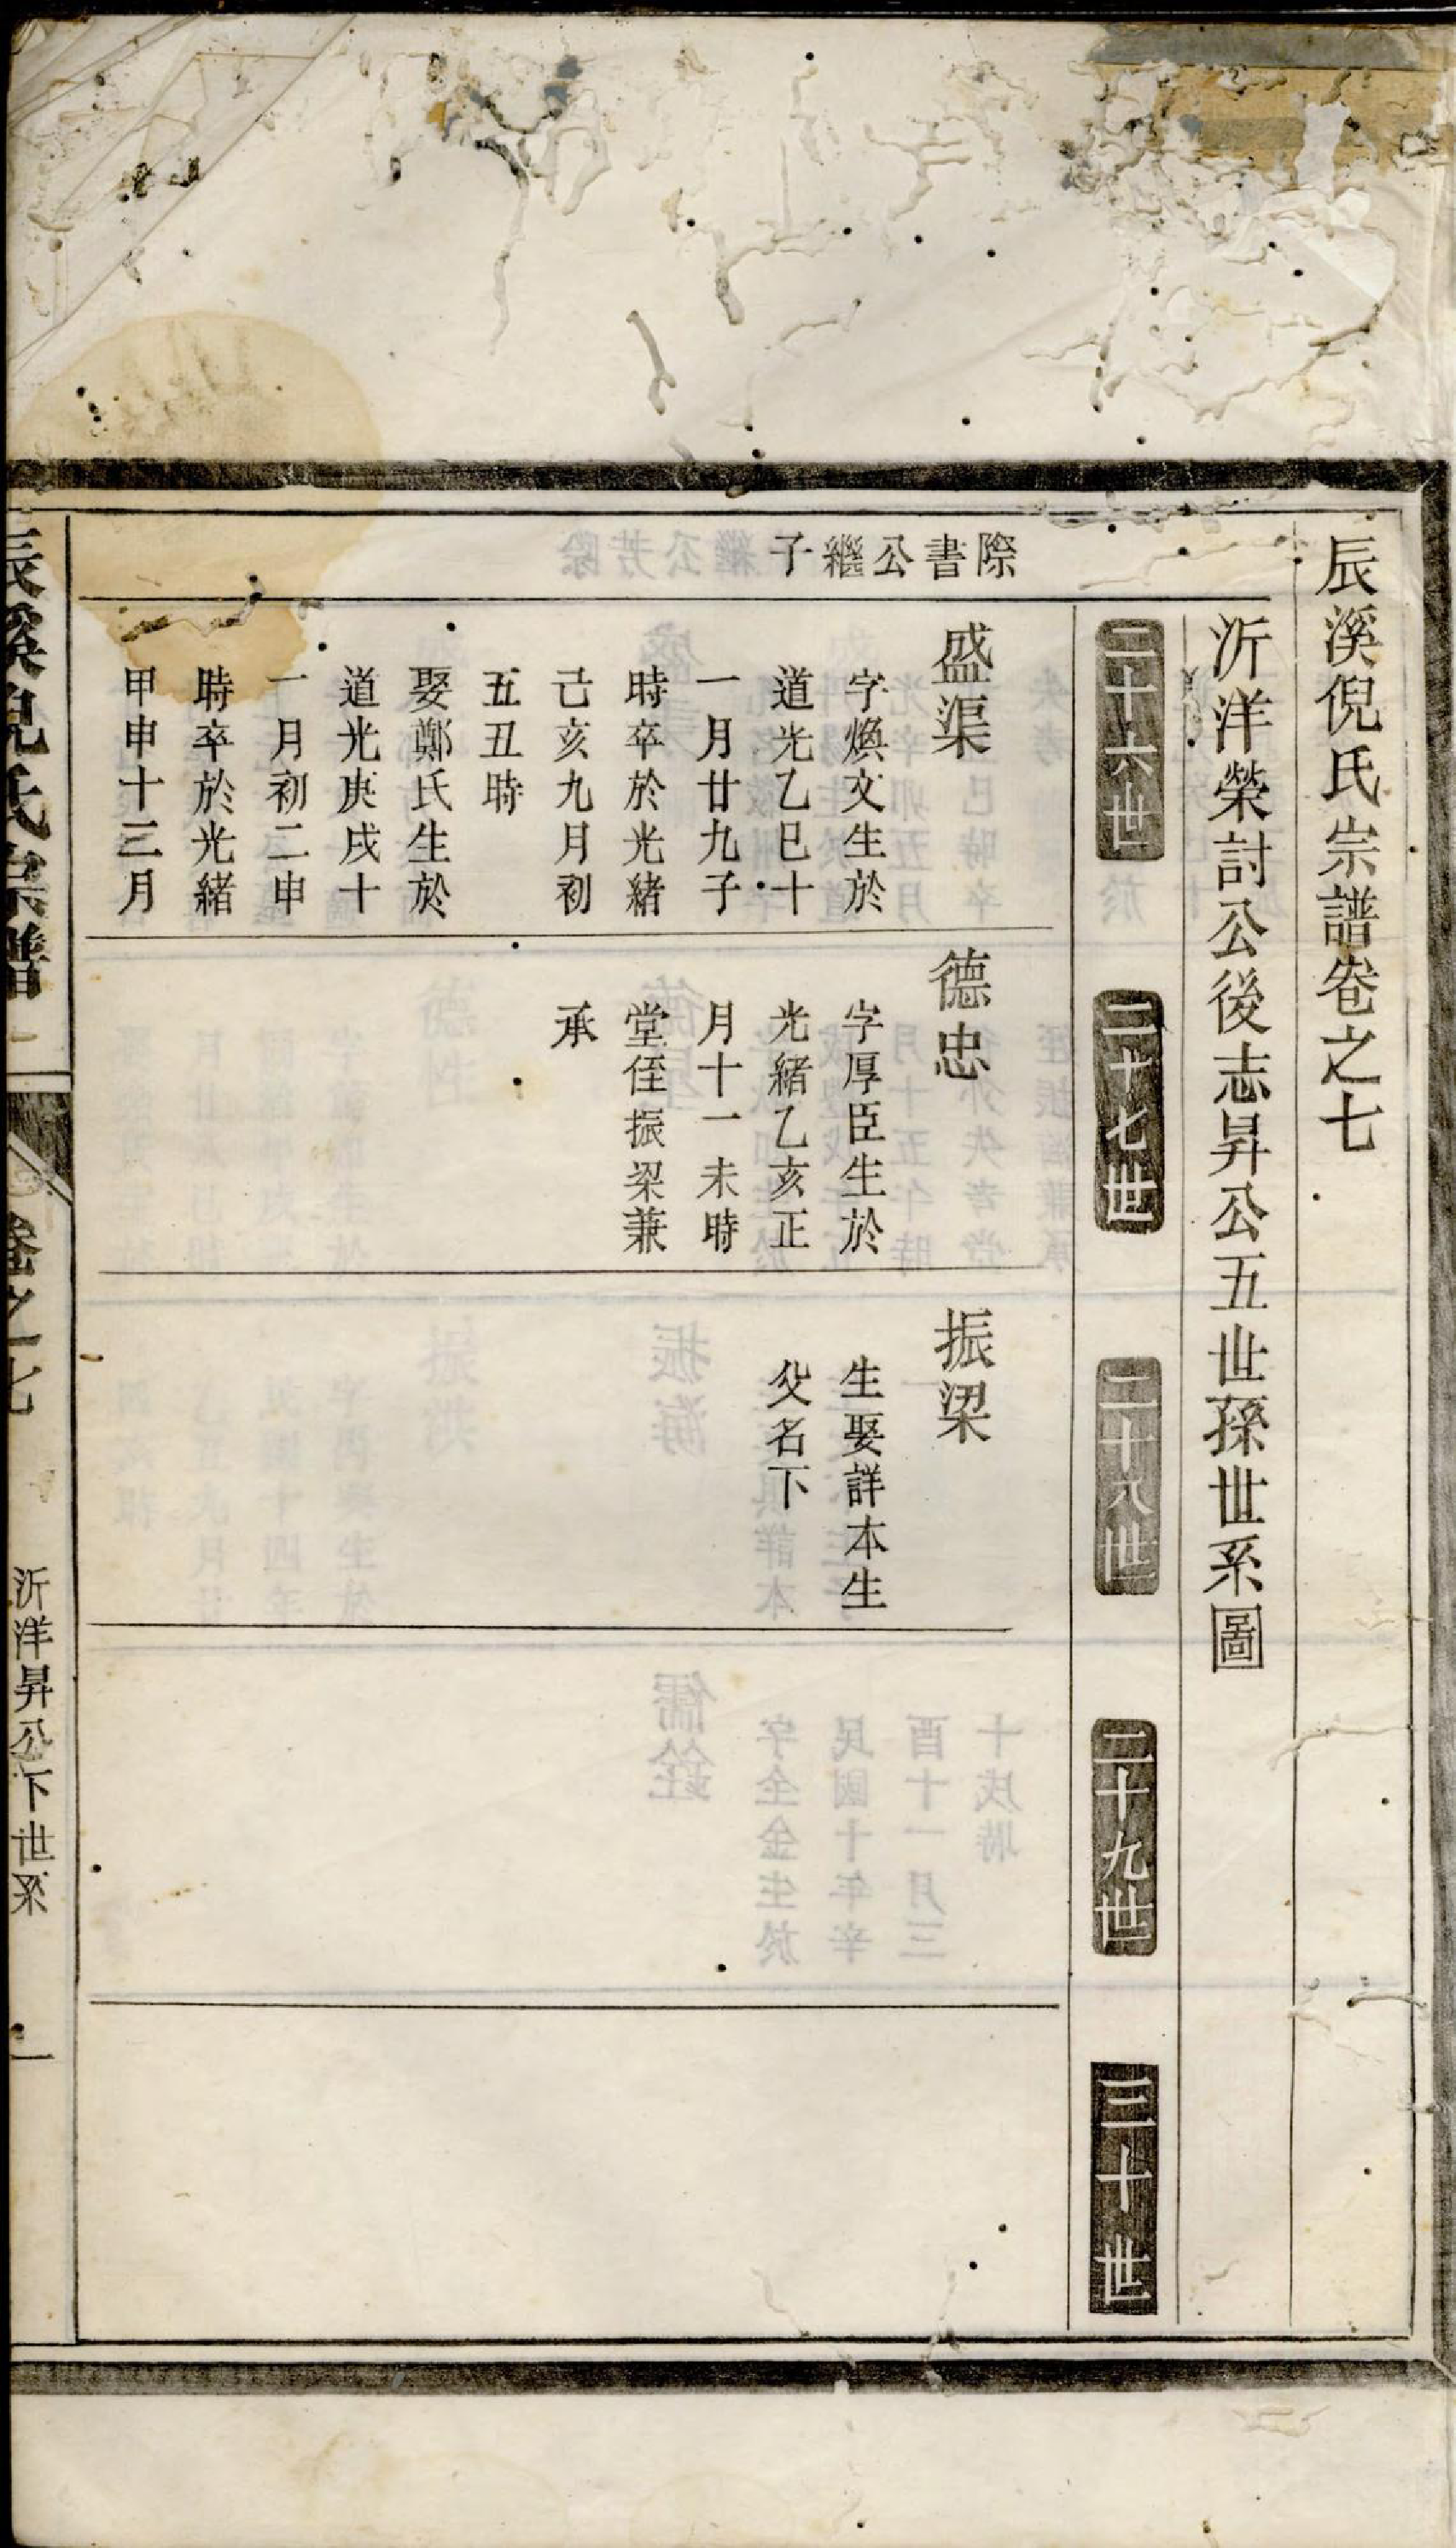 辰溪倪氏宗譜卷之七
沂洋榮討公後志昇公五世孫世系圖
二十六世
二十七世
二十八世
二十九世
三十世
際書公繼子
盛渠
字煥文生於
道光乙巳十
一月廿九子
時卒於光緒
己亥九月初
五丑時
娶鄭氏生於
道光庚戌十
一月初二申
時卒於光緒
甲申十三月
德忠
字厚臣生於
光緒乙亥正
月十一未時
堂侄振梁兼
承
振梁
生娶詳本生
父名下
辰溪倪氏宗譜
卷之七
沂洋昇公下世系
一